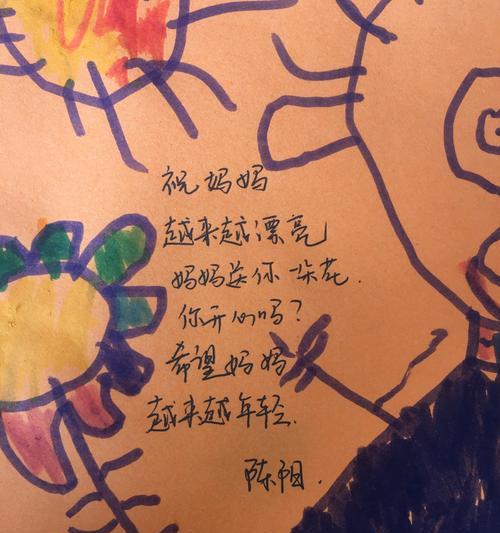 祝妈妈
越来越漂亮
妈妈送你一朵花.
你开心吗?
希望妈妈
越来越年轻.
陈阳.